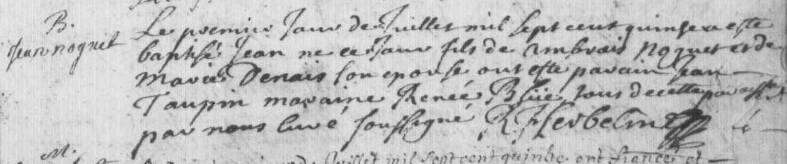 B.
Jean noquet
Le premier Jour de Juillet mil sept cent quinse a este
baptisé Jean ne ce Jour fils de Ambrois Noquet et de
Marie Denais son epouse ont este parain Jean
Taupin maraine Renee tous de cette paroisse
par nous curé soussigné R. Herbelin
M.
Juillet mil sept cent quinse ont